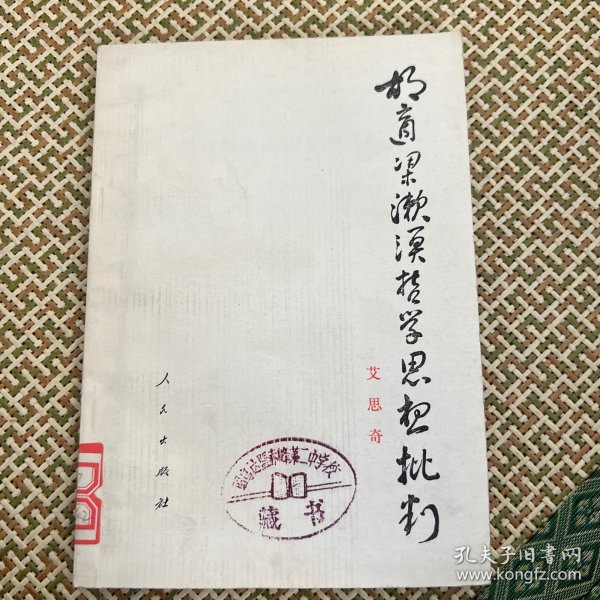 胡适梁漱溟哲学思想批判
艾思奇
人民出版社
赤峰第二中学校
藏书
孔夫子旧书网
www.kongfz.com